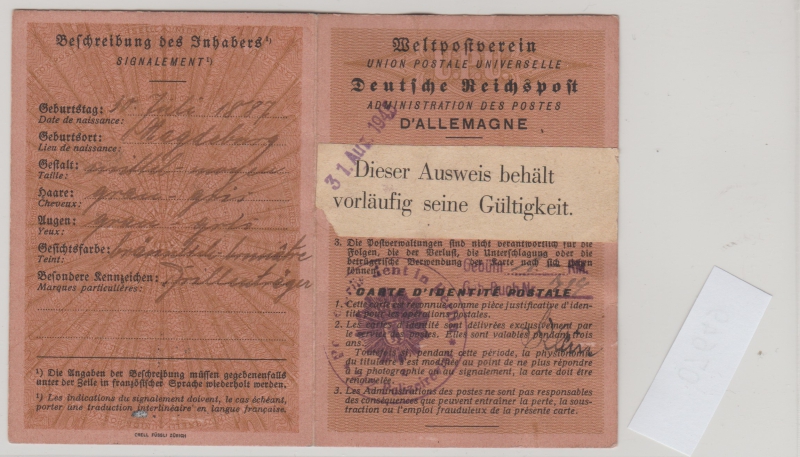 Beschreibung des Inhabers¹⁾
SIGNALEMENT¹⁾
Geburtstag: 10. Juli 1887
Date de naissance:
Geburtsort: Magdeburg
Lieu de naissance:
Gestalt: mittel - moyen
Taille:
Haare: grau - gris
Cheveux:
Augen: grau gris
Yeux:
Gesichtsfarbe: bräunlich brunâtre
Teint:
Besondere Kennzeichen: Brillenträger
Marques particulières:
¹⁾ Die Angaben der Beschreibung müssen gegebenenfalls
unter der Zeile in französischer Sprache wiederholt werden.
¹⁾ Les indications du signalement doivent, le cas échéant,
porter une traduction interlinéaire en langue française.
ORELL FÜSSLI ZÜRICH
Weltpostverein
UNION POSTALE UNIVERSELLE
Deutsche Reichspost
ADMINISTRATION DES POSTES
D'ALLEMAGNE
31. AUG. 194
Dieser Ausweis behält
vorläufig seine Gültigkeit.
3. Die Postverwaltungen sind nicht verantwortlich für die
Folgen, die der Verlust, die Unterschlagung oder die
betrügerische Verwendung der Karte nach sich ziehen
können.
Gebühr RM.
CARTE D'IDENTITÉ POSTALE
1. Cette carte est reconnue comme pièce justificative d'iden-
tité pour les opérations postales.
2. Les cartes d'identité sont délivrées exclusivement par
le service des postes. Elles sont valables pendant trois
ans.
Toutefois, si pendant cette période, la physionomie
du titulaire s'est modifiée au point de ne plus répondre
à la photographie ou au signalement, la carte doit être
renouvelée.
3. Les Administrations des postes ne sont pas responsables
des conséquences que peuvent entraîner la perte, la sous-
traction ou l'emploi frauduleux de la présente carte.